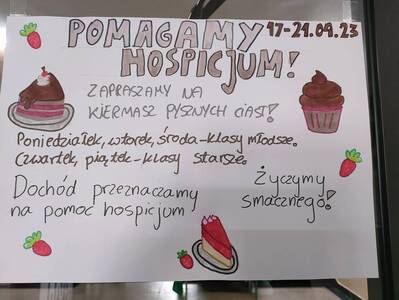 POMAGAMY 17-21.04.23
HOSPICJUM!
ZAPRASZAMY NA
KIERMASZ PYSZNYCH CIAST!
Poniedziałek, wtorek, środa-klasy młodsze.
Czwartek, piątek-klasy starsze.
Dochód przeznaczamy
na pomoc hospicjum
Życzymy
smacznego!